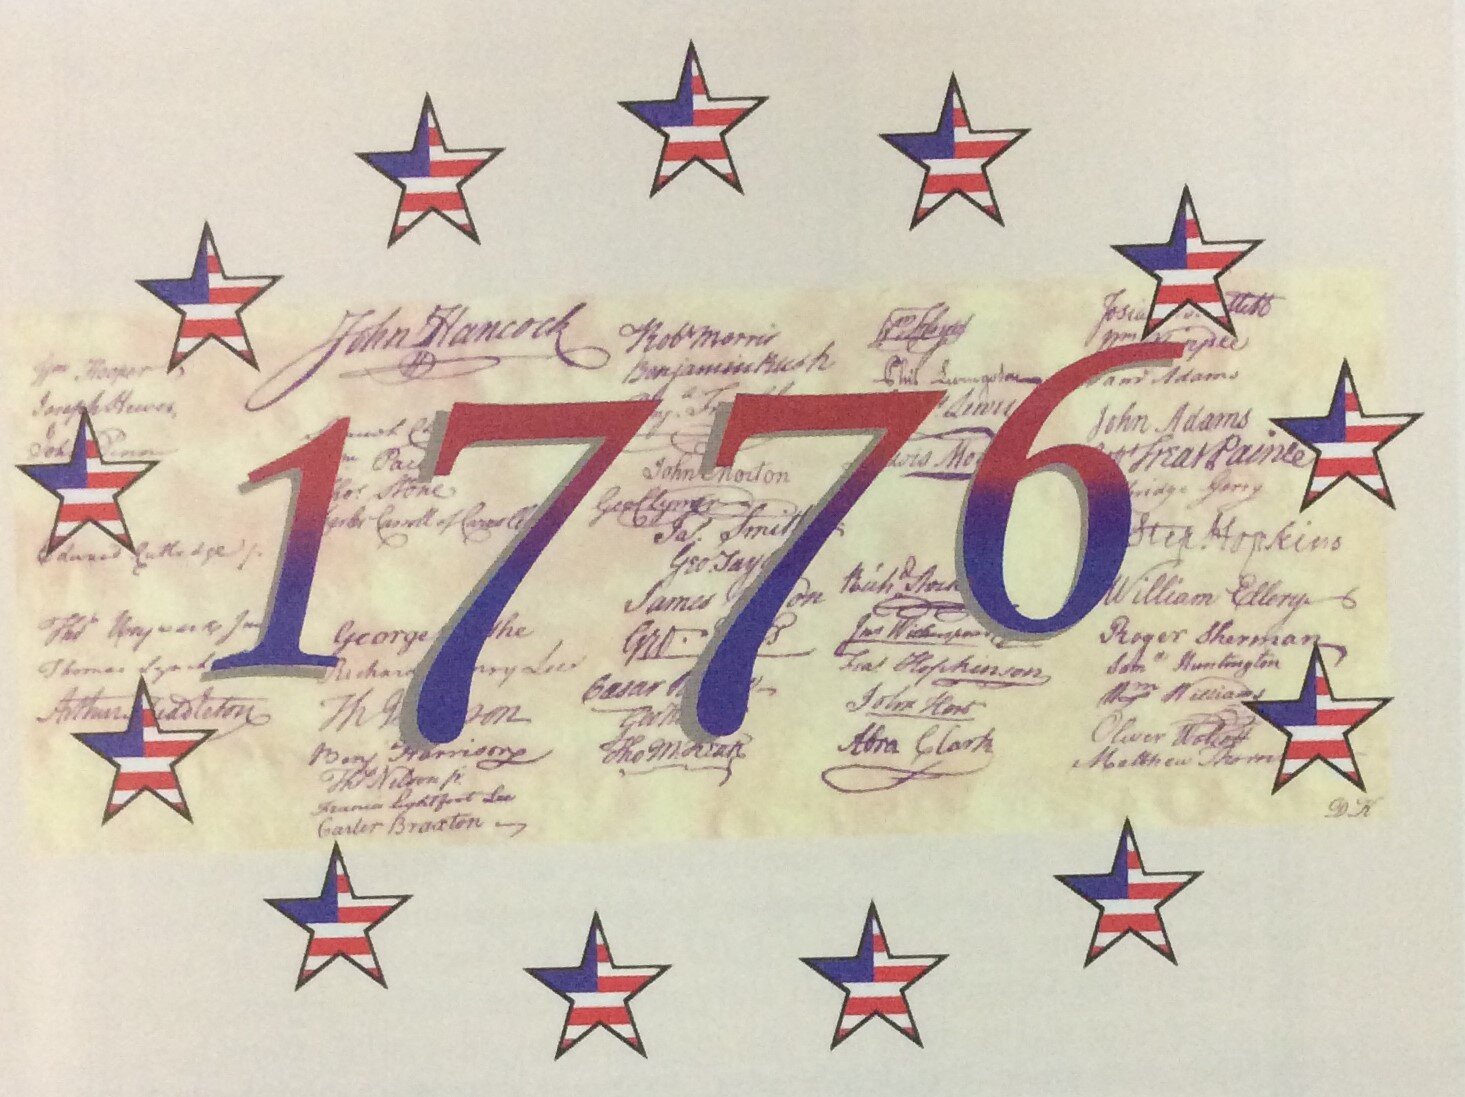 1776
John Hancock
Wm Hooper
Joseph Hewes,
John
Edward Rutledge
Thos Heyward Junr
Thomas Lynch
Arthur Middleton
Paca
Thos Stone
Charles Carroll of Carrollton
George Wythe
Richard Henry Lee
Th
Benj Harrison
Thos Nelson jr
Francis Lightfoot Lee
Carter Braxton
Robt Morris
Benjamin Rush
John Morton
Geo Clymer
Jas. Smith
Geo. Tay
James on
Geo
Caesar
Geo
Tho M:Kean
Phil. Livingston
Lewis
Lewis Mo
Richd
Jno Witherspoon
Fras Hopkinson
John Hart
Abra Clark
Josiah Bartlett
Wm Whipple
Saml Adams
John Adams
Treat Paine
Elbridge Gerry
Step. Hopkins
William Ellery
Roger Sherman
Saml Huntington
Wm Williams
Oliver Wolcott
Matthew Thornton
DK